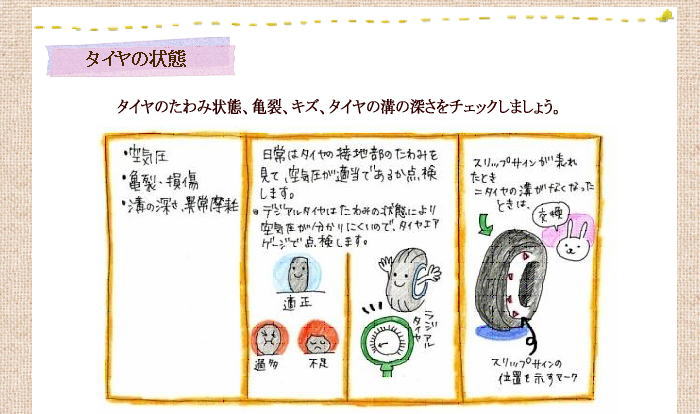 タイヤの状態
タイヤのたわみ状態、亀裂、キズ、タイヤの溝の深さをチェックしましょう。
・空気圧
・亀裂・損傷
・溝の深さ、異常摩耗
日常はタイヤの接地部のたわみを
見て、空気圧が適当であるか点検
します。
※デジアルタイヤはたわみの状態により
空気圧が分かりにくいので、タイヤエア
ゲージで点検します。
適正
過多
不足
ラジアル
タイヤ
スリップサインが表れ
たとき
=タイヤの溝がなくなった
ときは、
交換
スリップサインの
位置を示すマーク